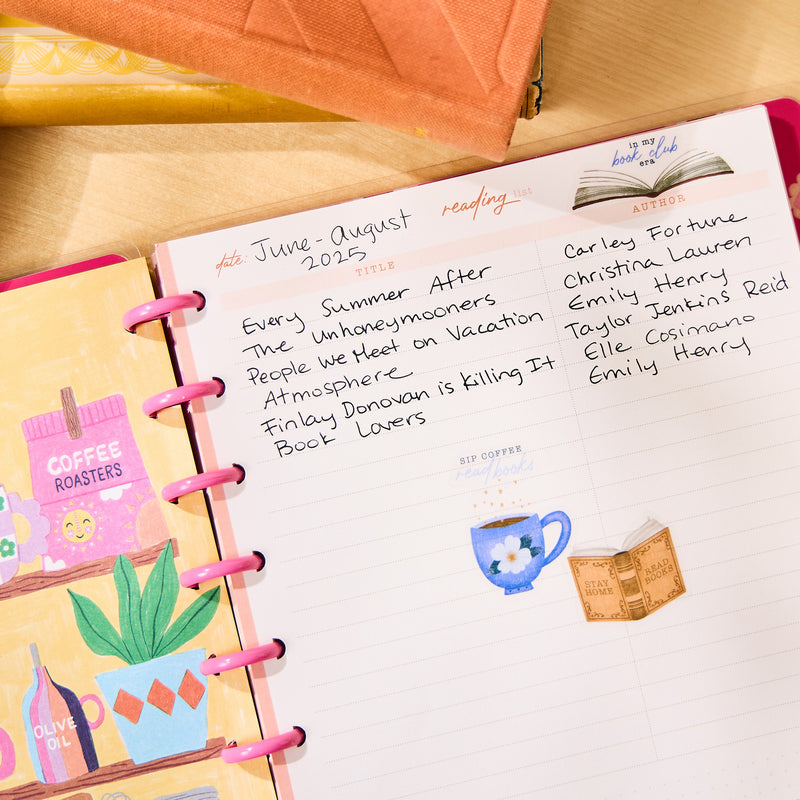 in my
book club
era
reading list
date: June - August
2025
TITLE
AUTHOR
Every Summer After
Carley Fortune
The Unhoneymooners
Christina Lauren
People We Meet on Vacation
Emily Henry
Atmosphere
Taylor Jenkins Reid
Finlay Donovan is Killing It
Elle Cosimano
Book Lovers
Emily Henry
SIP COFFEE
read books
STAY
HOME
READ
BOOKS
COFFEE
ROASTERS
OLIVE
OIL